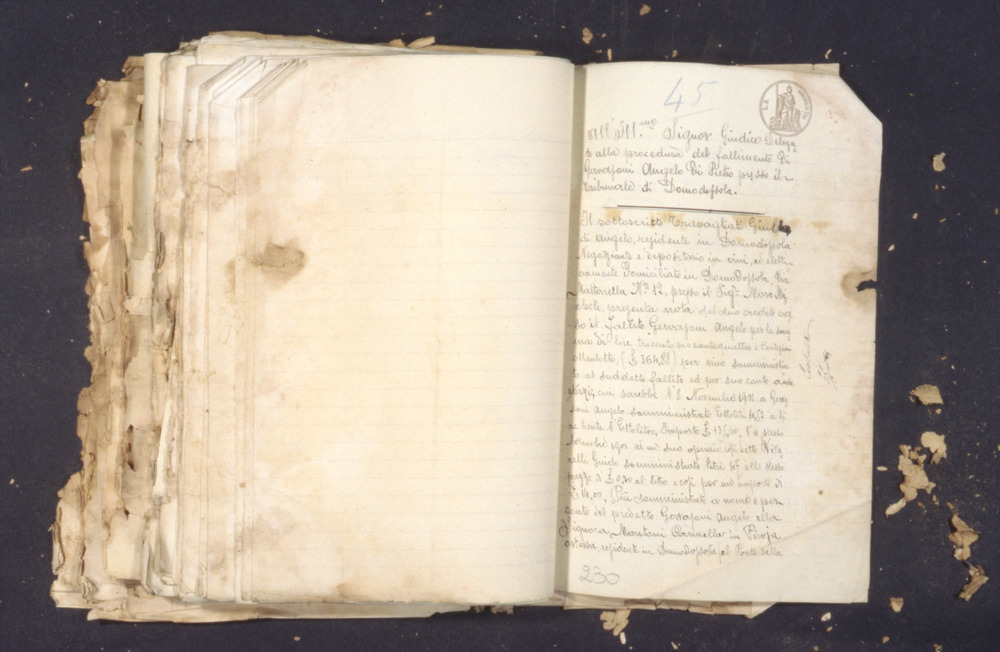 45
All' Ill.mo Signor Giudice Delega=
to alla procedura del fallimento di
Gervasoni Angelo di Pietro presso il
Tribunale di Domodossola.
Il sottoscritto Travagliati Giulio
di Angelo, residente in Domodossola
Negoziante e depositario in vini, ed eletti=
vamente domiciliato in Domodossola, Via
Mattarella N.º 12, presso il Sig.r Moro Mi
chele, presenta nota del suo credito ver
so il fallito Gervasoni Angelo per la som
ma di lire trecento sessantaquattro e centesimi
ottantotto, (£ 364,88) per vino somministra
to al suddetto fallito ed per suo conto a
terzi, cui sarebbe l'8 Novembre 1901 a Gerva
soni Angelo somministrato Ettolitri a li
re trenta l'Ettolitro, Importo £ l'11 stesso
Novembre 1901 ad un suo operaio
Guido somministrato litri allo stesso
prezzo di £ 0,30 al litro e così per un importo di
£ Più somministrato a nome e per
conto del predetto Gervasoni Angelo alla
Signora Mantoni Carinella in
ostessa, residente in Domodossola al Ponte della
230